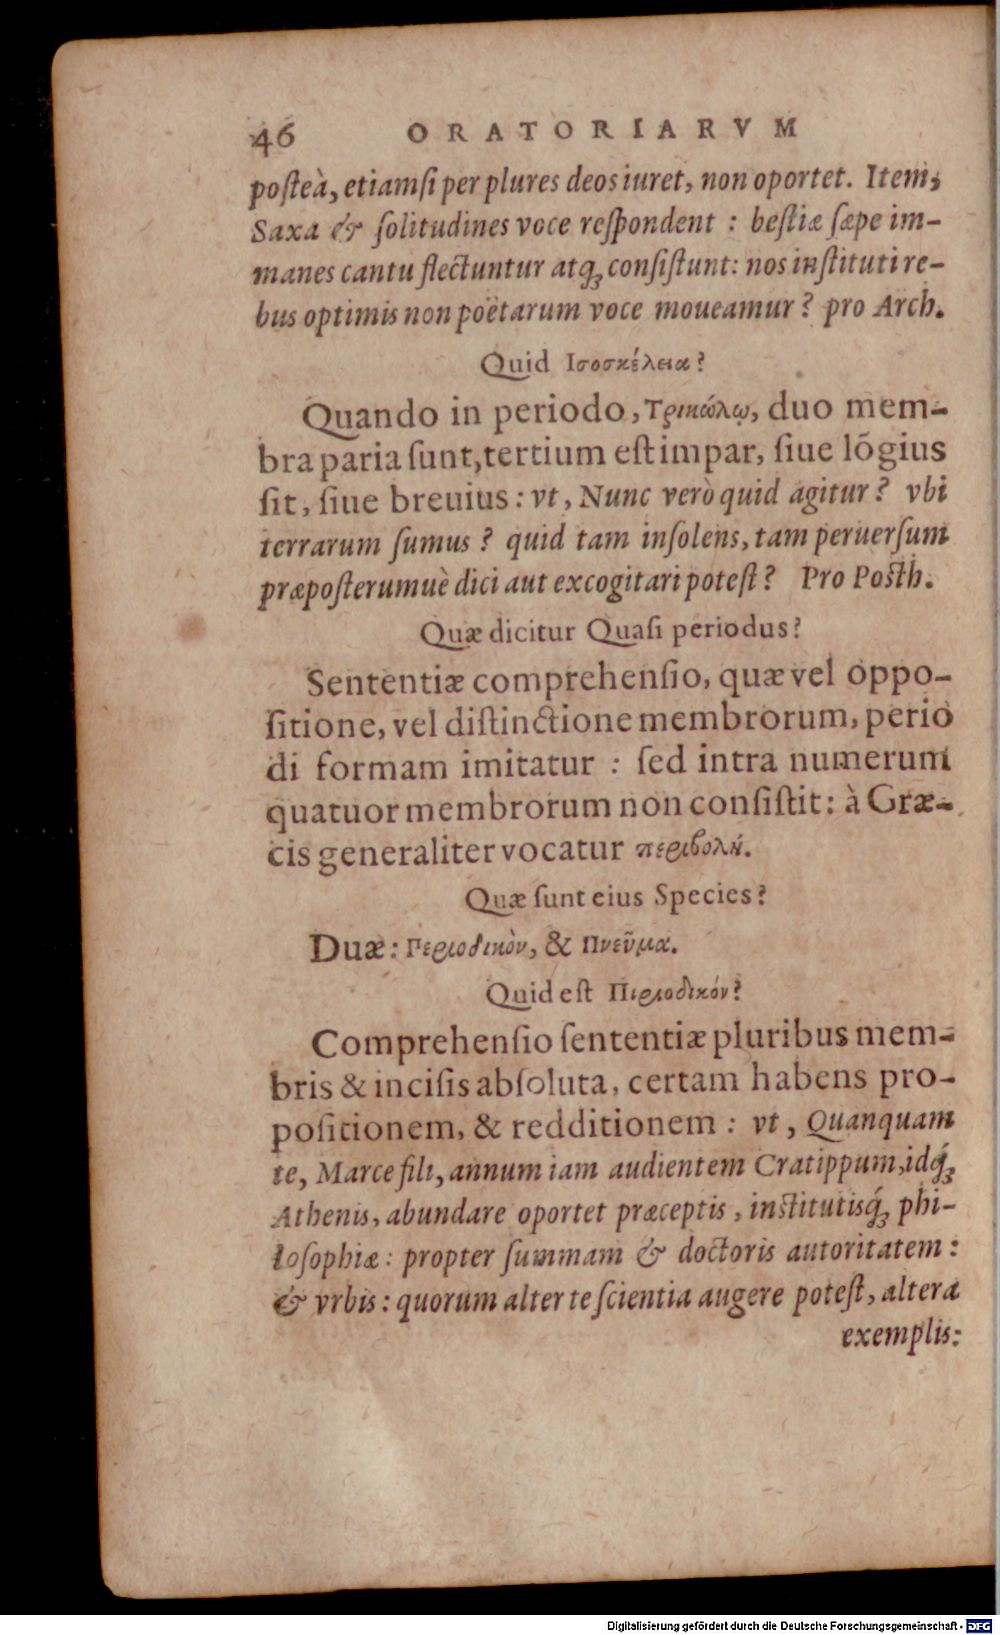 46 ORATORIARVM
posteà, etiamsi per plures deos iuret, non oportet. Item,
Saxa & solitudines voce respondent : bestiæ sæpe im-
manes cantu flectuntur atq; consistunt: nos instituti re-
bus optimis non poëtarum voce moueamur? pro Arch.
Quid Ισοσκέλεια?
Quando in periodo, Τρικώλῳ, duo mem-
bra paria sunt, tertium est impar, siue lõgius
sit, siue breuius: vt, Nunc verò quid agitur? vbi
terrarum sumus? quid tam insolens, tam peruersum
præposterumuè dici aut excogitari potest? Pro Posth.
Quæ dicitur Quasi periodus?
Sententiæ comprehensio, quæ vel oppo-
sitione, vel distinctione membrorum, perio
di formam imitatur : sed intra numerum
quatuor membrorum non consistit: à Græ-
cis generaliter vocatur περιβολή.
Quæ sunt eius Species?
Duæ: Περιοδικὸν, & Πνεῦμα.
Quid est Πιριοδικόν?
Comprehensio sententiæ pluribus mem-
bris & incisis absoluta, certam habens pro-
positionem, & redditionem : vt, Quanquam
te, Marce fili, annum iam audientem Cratippum, idq́;
Athenis, abundare oportet præceptis, institutisq́; phi-
losophiæ: propter summam & doctoris autoritatem:
& vrbis: quorum alter te scientia augere potest, altera
exemplis:
Digitalisierung gefördert durch die Deutsche Forschungsgemeinschaft - DFG